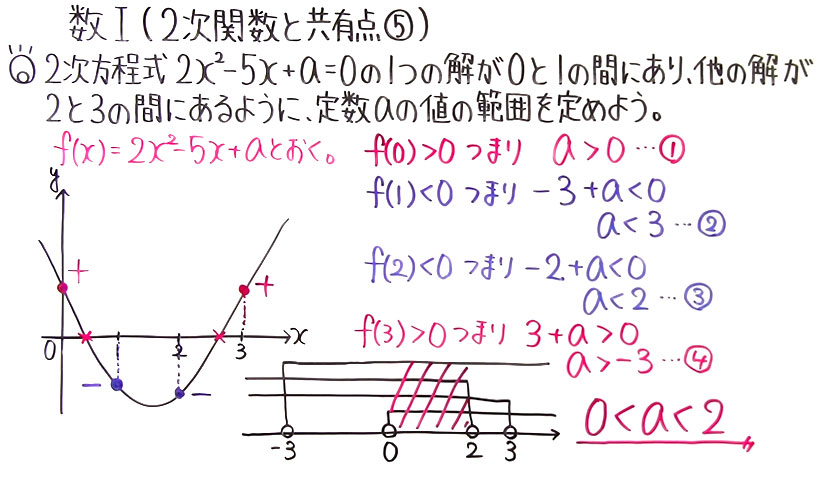 数I(2次関数と共有点⑤)
2次方程式2x²-5x+a=0の1つの解が0と1の間にあり、他の解が
2と3の間にあるように、定数aの値の範囲を定めよう。
f(x)=2x²-5x+aとおく。
f(0)>0つまり a>0…①
f(1)<0つまり -3+a<0
a<3…②
f(2)<0つまり -2+a<0
a<2…③
f(3)>0つまり 3+a>0
a>-3…④
y
+
+
0
1
2
3
x
-
-
-3
0
2
3
0<a<2